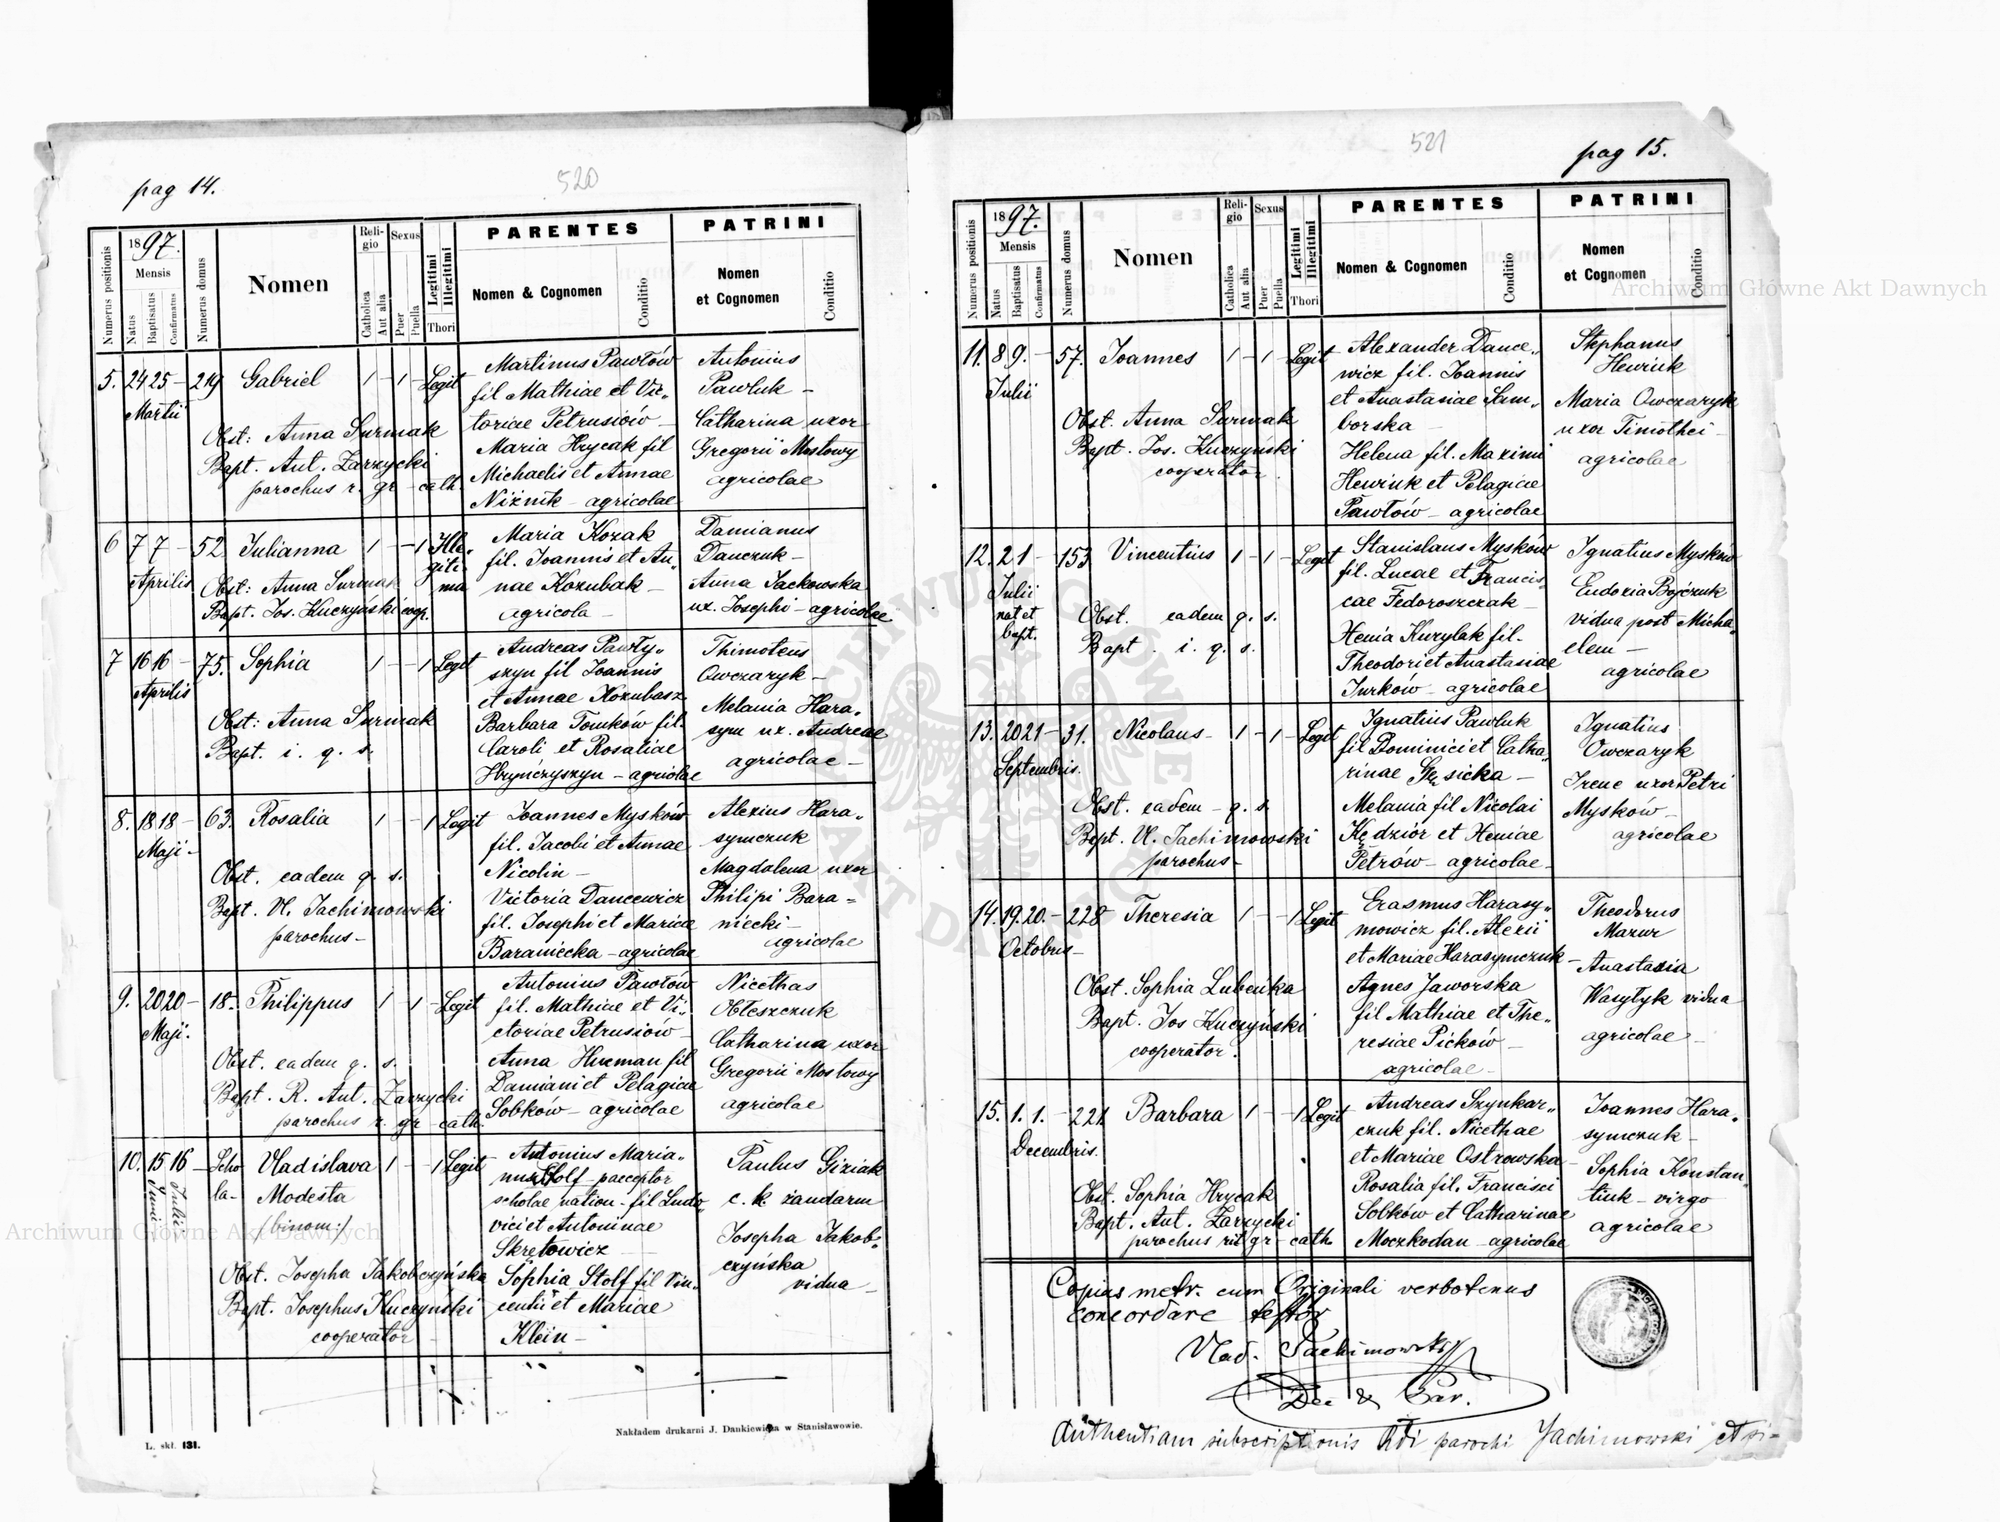 pag 14.
520
Numerus positionis
1897.
Mensis
Natus
Baptisatus
Confirmatus
Numerus domus
Nomen
Reli-
gio
Catholica
Aut alia
Sexus
Puer
Puella
Legitimi
Illegitimi
Thori
PARENTES
Nomen & Cognomen
Conditio
PATRINI
Nomen
et Cognomen
Conditio
5. 24 25 – 219 Gabriel 1 – 1 – Legit
Martii
Obst: Anna Surmak
Bapt. Ant. Zarzycki
parochus r. gr – cath.
Martinus Pawłów
fil Mathiae et Vic„
toriae Petrusiów –
Maria Hrycak fil
Michaelis et Annae
Niżnik – agricolae
Antonius
Pawluk –
Catharina uxor
Gregorii Mostowy
agricolae
6 7 7 – 52 Julianna 1 – – 1 Ille„
giti„
ma
Aprilis
Obst: Anna Surmak
Bapt. Jos. Kuczyński coop.
Maria Kozak
fil. Joannis et An„
nae Kozubak –
agricola –
Damianus
Danczuk –
Anna Jackowska
ux. Josephi – agricolae
7 16 16 – 75. Sophia 1 – – 1 Legit
Aprilis
Obst: Anna Surmak
Bapt. i. q. s.
Andreas Pawły„
szyn fil Joannis
et Annae Kozubasz
Barbara Tomków fil.
Caroli et Rosaliae
Hryńczyszyn – agricolae
Thimoteus
Owczaryk –
Melania Hara„
sym ux. Andreae
agricolae –
8. 18 18 – 63. Rosalia 1 – – 1 Legit
Maji –
Obst. eadem q. s.
Bapt. Vl. Jachimowski
parochus –
Joannes Mysków
fil. Jacobi et Annae
Nicolin –
Victoria Dancewicz
fil. Josephi et Mariae
Baraniecka – agricolae
Alexius Hara„
symczuk
Magdalena uxor
Philipi Bara„
niecki –
agricolae
9. 20 20 – 18 – Philippus 1 – 1 – Legit
Maji.
Obst. eadem q. s.
Bapt. R. Ant. Zarzycki
parochus r. gr – cath.
Antonius Pawłów
fil. Mathiae et Vi„
ctoriae Petrusiów –
Anna Huzman fil
Damiani et Pelagiae
Sobków – agricolae
Nicethas
Obłeszczuk
Catharina uxor
Gregorii Mostowy
agricolae
10. 15 16 – Scho
la –
Junii
Julii
Vladislava 1 – – 1 Legit
Modesta
/binom:/
Obst. Josepha Jakobczyńska
Bapt. Josephus Kuczyński
cooperator –
Antonius Maria„
nus Wolf – paeceptor
scholae nation – fil Ludo„
vici et Antoninae
Skrętowicz –
Sophia Stolf fil Vin„
centii et Mariae
Klein –
Paulus Giziak
c. k żandarm
Josepha Jakob„
czyńska
vidua –
L. skł. 131.
Nakładem drukarni J. Dankiewicza w Stanisławowie.
pag 15.
521
Numerus positionis
1897.
Mensis
Natus
Baptisatus
Confirmatus
Numerus domus
Nomen
Reli-
gio
Catholica
Aut alia
Sexus
Puer
Puella
Legitimi
Illegitimi
Thori
PARENTES
Nomen & Cognomen
Conditio
PATRINI
Nomen
et Cognomen
Conditio
11. 8 9. – 57. Joannes 1 – 1 – Legit
Julii
Obst. Anna Surmak
Bapt. Jos. Kuczyński
cooperator
Alexander Dance„
wicz fil. Joannis
et Anastasiae Sam„
borska –
Helena fil. Maximi
Hewiuk et Pelagiae
Pawłów – agricolae
Stephanus
Hewiuk
Maria Owczaryk
uxor Timothei –
agricolae
12. 21 – 153 Vincentius 1 – 1 – Legit
Julii
nat et
bapt.
Obst. eadem q. s.
Bapt. i. q. s.
Stanislaus Mysków
fil. Lucae et Francis„
cae Fedoroszczak –
Henia Kurylak fil.
Theodori et Anastasiae
Jurków – agricolae
Ignatius Mysków
Eudoxia Bojczuk
vidua post Micha„
elem –
agricolae
13. 20 21 – 31. Nicolaus – 1 – 1 – Legit
Septembris.
Obst. eadem – q. s.
Bapt. Vl. Jachimowski
parochus –
Ignatius Pawluk
fil Dominici et Catha„
rinae Gęsicka –
Melania fil Nicolai
Kędziór et Heniae
Petrów – agricolae –
Ignatius
Owczaryk
Irene uxor Petri
Mysków –
agricolae
14. 19. 20. – 228 Theresia 1 – – 1 Legit
Octobris –
Obst. Sophia Lubeńka
Bapt. Jos Kuczyński
cooperator.
Erasmus Harasy„
mowicz fil. Alexii
et Mariae Harasymczuk –
Agnes Jaworska
fil Mathiae et The„
resiae Picków –
agricolae –
Theodorus
Mazur
Anastasia
Wasyłyk vidua
agricolae –
15. 1. 1. – 221. Barbara 1 – – 1 Legit
Decembris.
Obst. Sophia Hrycak
Bapt. Ant. Zarzycki
parochus rit gr – cath
Andreas Szynkar„
czuk fil. Nicethae
et Mariae Ostrowska –
Rosalia fil. Francisci
Sobków et Catharinae
Moczkodan – agricolae
Joannes Hara„
symczuk –
Sophia Konstan„
tiuk – virgo
agricolae
Copias metr. cum Originali verbotenus
concordare testor
Vlad. Jachimowski
Dec & Par.
Authentiam subscriptionis Rdi parochi Jachimowski et si-
Archiwum Główne Akt Dawnych
Archiwum Główne Akt Dawnych
ARCHIWUM GŁÓWNE AKT DAWNYCH